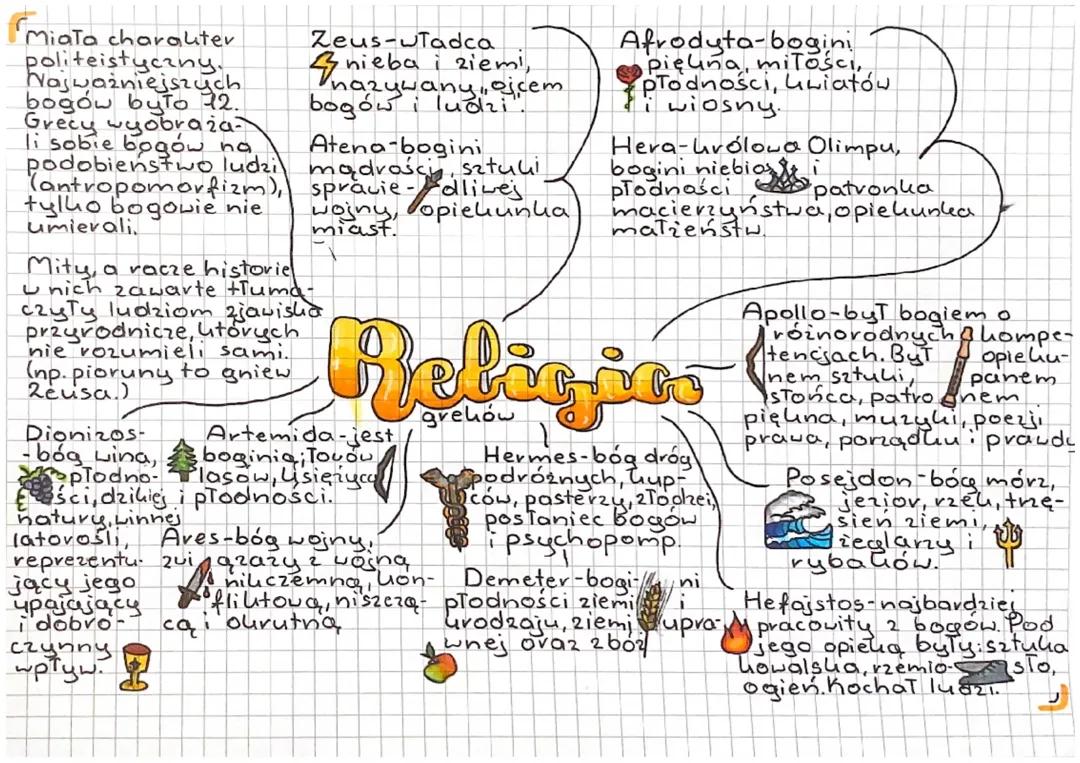 Miała charakter
politeistyczny.
Najważniejszych
bogów było 12.
Grecy wyobraża-
li sobie bogów na
podobieństwo ludzi
(antropomorfizm),
tylko bogowie nie
umierali.
Mity, a racze historie
w nich zawarte tłuma-
czyły ludziom zjawiska
przyrodnicze, których
nie rozumieli sami.
(np. pioruny to gniew
Zeusa.)
Zeus-władca
nieba i ziemi,
nazywany „ojcem
bogów i ludzi".
Atena-bogini
mądrości, sztuki
sprawie-dliwej
wojny, opiekunka
miast.
Afrodyta-bogini
piękna, miłości,
płodności, kwiatów
i wiosny.
Hera-królowa Olimpu,
bogini niebios i
płodności patronka
macierzyństwa, opiekunka
małżeństw.
Religia
greków
Apollo-był bogiem o
różnorodnych kompe-
tencjach. Był opieku-
nem sztuki, panem
słońca, patronem
piękna, muzyki, poezji
prawa, porządku i prawdy
Dionizos-
-bóg wina,
płodno-
ści, dzikiej
natury, winnej
latorośli,
reprezentu-
jący jego
upajający
i dobro-
czynny
wpływ.
Artemida-jest
boginią; łowów
lasów, księżyca
i płodności.
Ares-bóg wojny,
związany z wojną
nikczemną, kon-
fliktową, niszczą-
cą i okrutną
Hermes-bóg dróg
podróżnych, kup-
ców, pasterzy, złodziei,
posłaniec bogów
i psychopomp.
Demeter-bogi-ni
płodności ziemi i
urodzaju, ziemi upra-
wnej oraz zbóż
Posejdon-bóg mórz,
jezior, rzek, trzę-
sień ziemi,
żeglarzy i
rybaków.
Hefajstos-najbardziej
pracowity z bogów. Pod
jego opieką były: sztuka
kowalska, rzemio-sło,
ogień. Kochał ludzi.